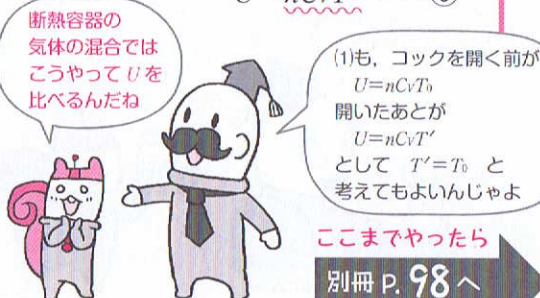 断熱容器の
気体の混合では
こうやってUを
比べるんだね
(1)も，コックを開く前が
U=nCvT₀
開いたあとが
U=nCvT′
として T′=T₀ と
考えてもよいんじゃよ
ここまでやったら
別冊 P. 98 へ